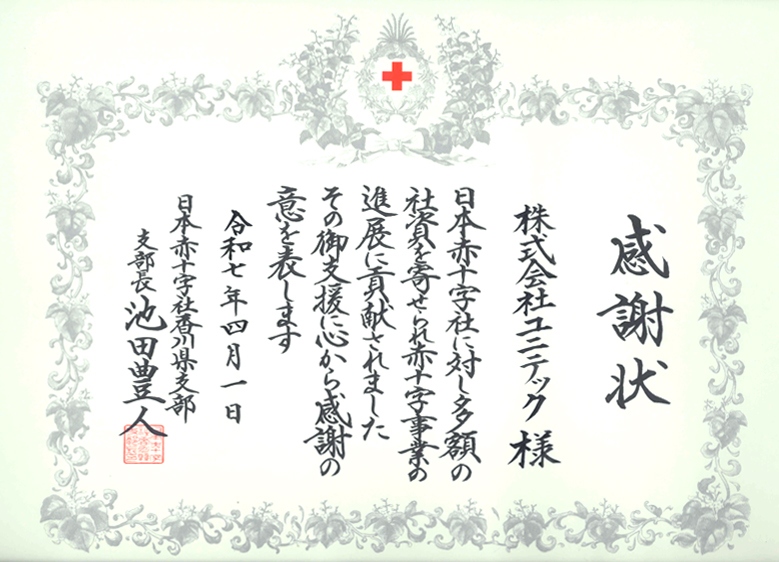 感謝状
株式会社ユニテック 様
日本赤十字社に対し多額の
社資を寄せられ赤十字事業の
進展に貢献されました
その御支援に心から感謝の
意を表します
令和七年四月一日
日本赤十字社香川県支部
支部長 池田豊人